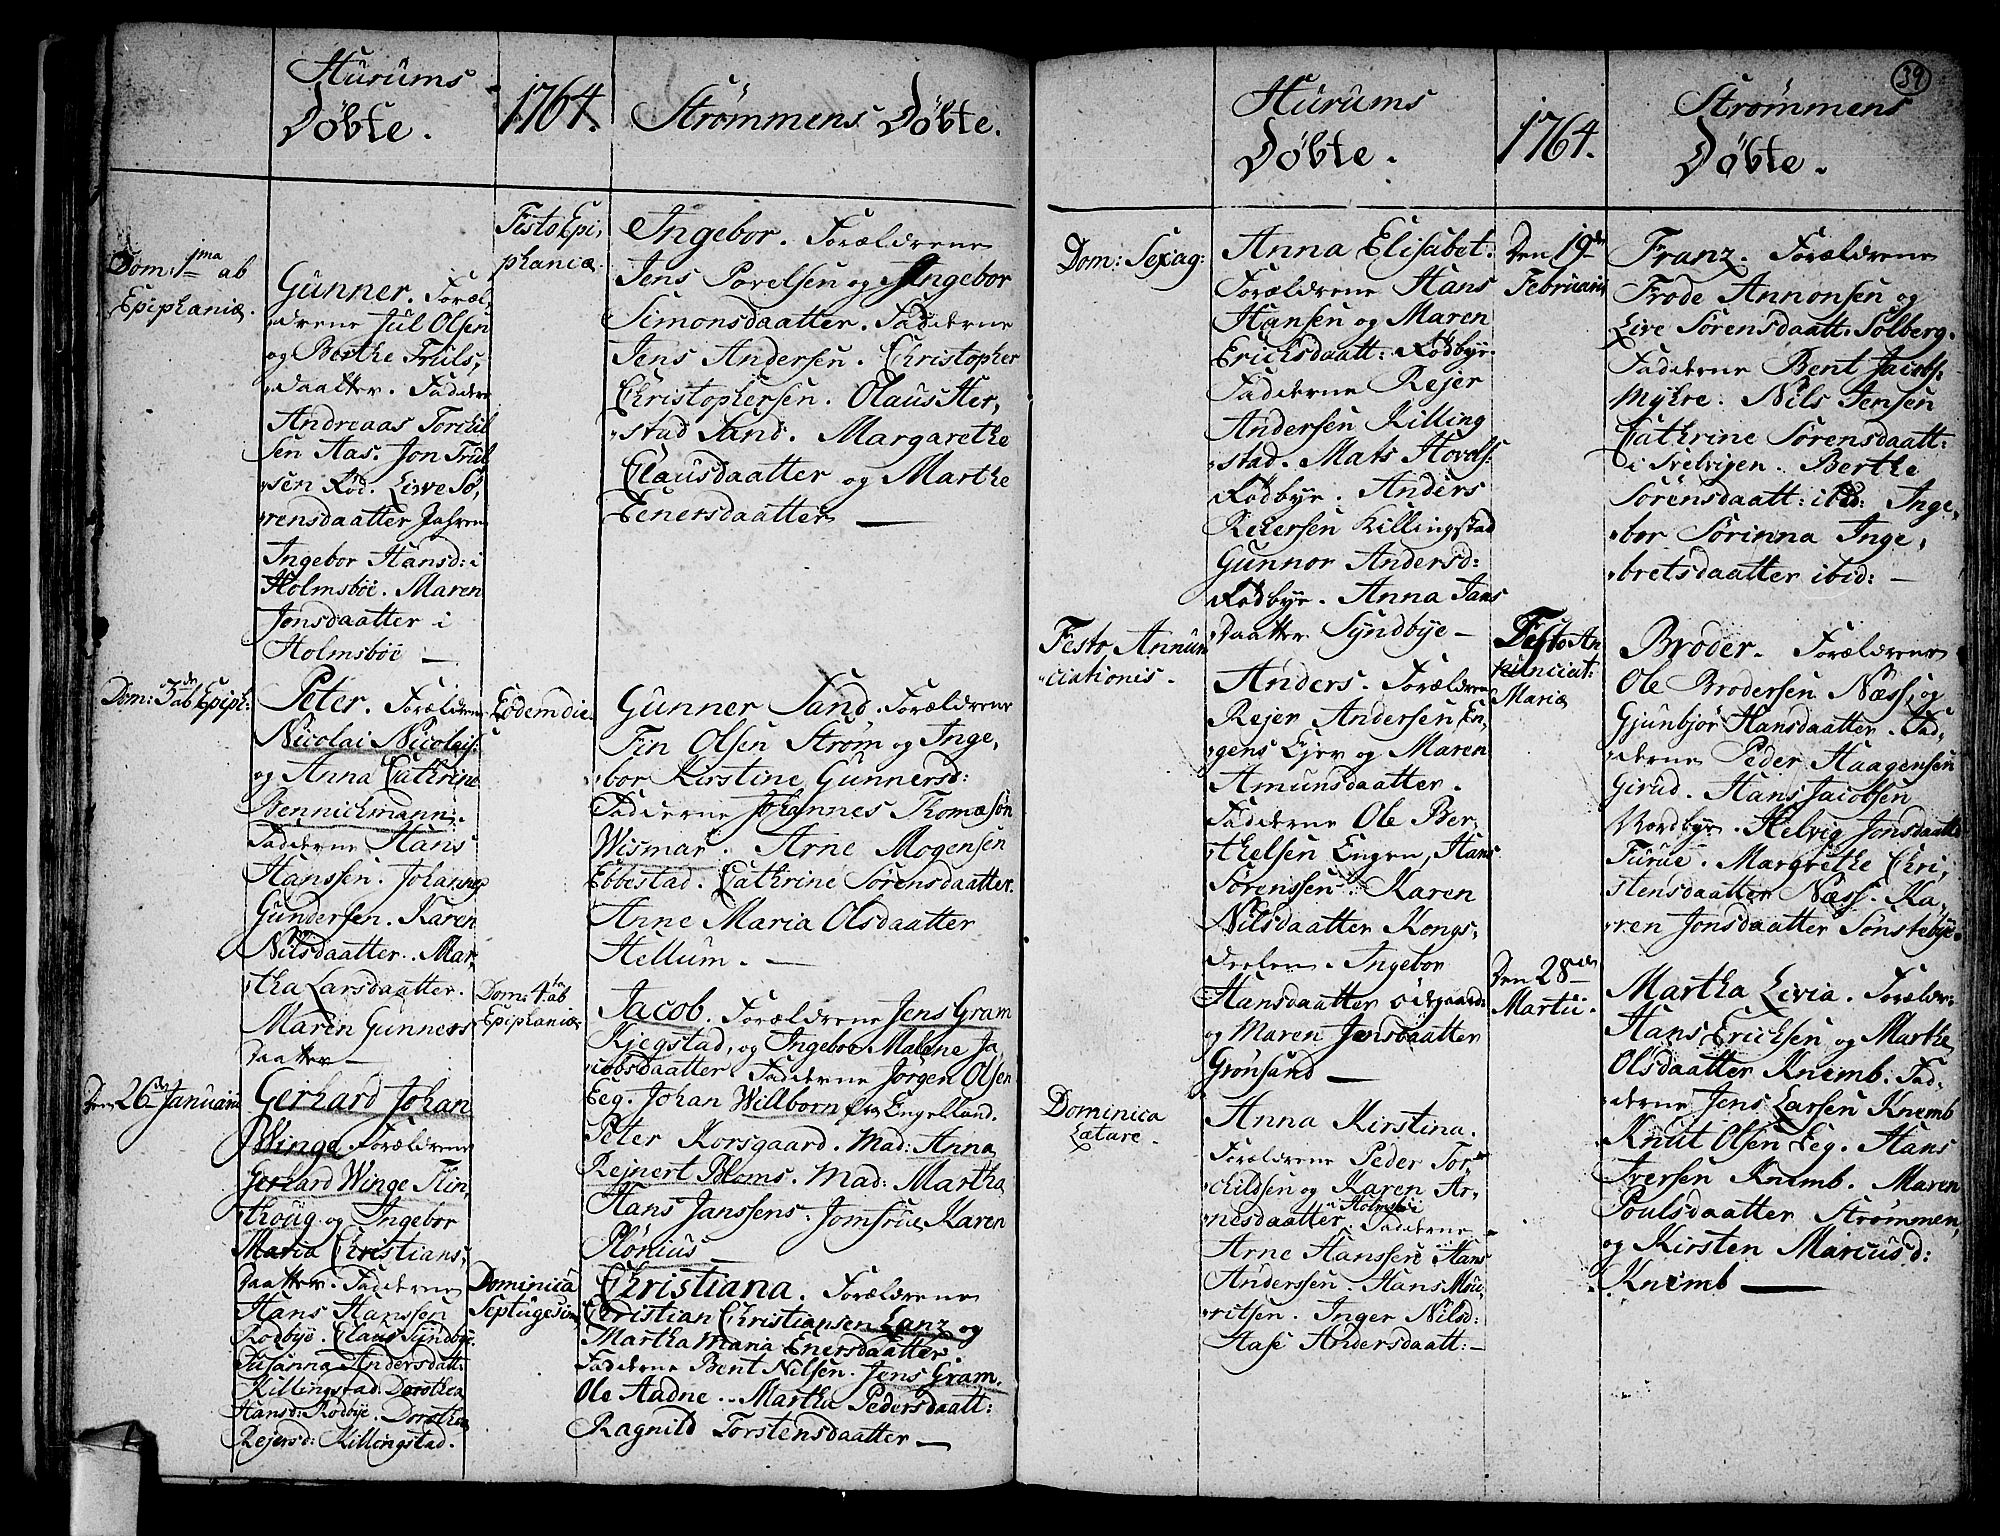 Hurums
Døbte.
1764.
Strømmens Døbte.
Dom: 1ma ab
Epiphaniæ.
Gunner. Foræl„
„drene Jul Olsen
og Berthe Truls„
„daatter. Faddere
Andreaas Torchil
sen Aas. Jon Trul
„sen Rød. Live Sø„
„rensdaatter Jahren
Ingebor Hansd: i
Holmsböe. Maren
Jonsdaatter i
Holmsböe —
Dom: 3de ab Epiph:
Peter. Forældrene
Nicolai Nicolais:
og Anna Cathrine
Rennichmann.
Fadderne Hans
Hanssen. Johannes
Gundersen. Karen
Nilsdaatter. Mar„
„tha Larsdaatter.
Maren Gunners
daatter —
Den 26de Januarii
Gerhard Johan
Winge Forældrene
Gerhard Winge Klin„
„houg og Ingebor
Maria Christians„
daatter. Fadderne
Hans Hanssen
Rödbÿe. Claus Sÿndbÿe.
Susanna Andersdatt:
Killingstad Dorothea
Hansd: Rödbÿe. Dorothea
Rejersd: Killingstad.
Festo Epi„
phaniæ.
Ingebor. Forældrene
Jens Povelsen og Ingebor
Simonsdaatter. Fadderne
Jens Andersen. Christopher
Christophersen. Olaus Her„
„stad Sand. Margarethe
Clausdaatter og Marthe
Eenersdaatter —
Eodem die.
Gunner Sand. Forældrene
Fin Olsen Strøm og Inge„
„bor Kirstine Gunnersd:
Fadderne Johannes Thomæsøn
Wismar. Arne Mogensen
Ebbestad. Cathrine Sørensdaatter.
Anne Maria Olsdaatter
Hellum. —
Dom: 4ta ab
Epiphaniæ
Jacob. Forældrene Jens Gram
Kjegstad, og Ingebor Malene Ja
„cobsdaatter Fadderne Jørgen Olsen
Eeg. Johan Willborn fra Engelland.
Peter Korsgaard. Mad: Anna
Rejnert Bloms. Mad: Martha
Hans Janssens. Jomfrue Karen
Plönius —
Dominica
Septugesim
Christiana. Forældrene
Christian Christiansen Lanz og
Martha Maria Enersdaatter.
Fadderne Bent Nilsen. Jens Gram.
Ole Aadne. Martha Pedersdaatt:
Ragnild Torstensdaatter —
39
Hurums
Døbte.
1764.
Strømmens
Døbte.
Dom: Sexag:
Anna Elisabet.
Forældrene Hans
Hansen og Maren
Erichsdaatt: Rødbye.
Fadderne Rejer
Andersen Killing
„stad. Mats Hovels:
Rødbye. Anders
Rejersen Killingstad
Gunnor Andersd:
Rødbye. Anna Jans
daatter Syndbye —
Festo Annun
„ciationis.
Anders. Forældrene
Rejer Andersen En„
„gens Ejer og Maren
Amunsdaatter.
Fadderne Ole Ber„
„thelsen Engen, Hans
Sörenssen. Karen
Nilsdaatter Kongs„
deelen. Ingebor
Hansdaatter Ödegaard:
og Maren Jensdaatter
Grönsand —
Dominica
Lætare.
Anna Kirstina.
Forældrene Peder Tor„
„childsen og Karen Ar„
Holmsböe
nesdaatter. Fadderne
Arne Hanssen Hans
Anderssen. Hans Mou„
„ritsen. Inger Nilsd:
Aase Andersdaatt: —
Den 19de
Februarii
Franz. Forældrene
Frode Annonsen og
Live Sørensdaatt: Solberg.
Fadderne Bent Jacobs:
Mÿhre. Nils Jensen
Cathrine Sørensdaatt:
i Svelvigen. Berthe
Sørensdaatt: ibid: Inge„
„bor Sørinna Inge„
„bretsdaatter ibid: —
Festo An
nunciat:
Mariæ
Broder. Forældrene
Ole Brodersen Næss, og
Gjunbjör Hansdaatter. Fad„
„derne Peder Haagensen
Girud. Hans Jacobsen
Nordbye. Helvig Jonsdaatter
Furue. Margrethe Chri„
„stensdaatter Næss. Ka„
„ren Jonsdaatter Sønstebÿe.
Den 28de
Martii.
Martha Livia. Forældre:
Hans Erichsen og Marthe
Olsdaatter Knemb. Fad„
„derne Jens Larsen Knemb
Knut Olsen Eeg. Hans
Iversen Knemb. Maren
Poulsdaatter Strømmen,
og Kirsten Marcusd:
Knemb —